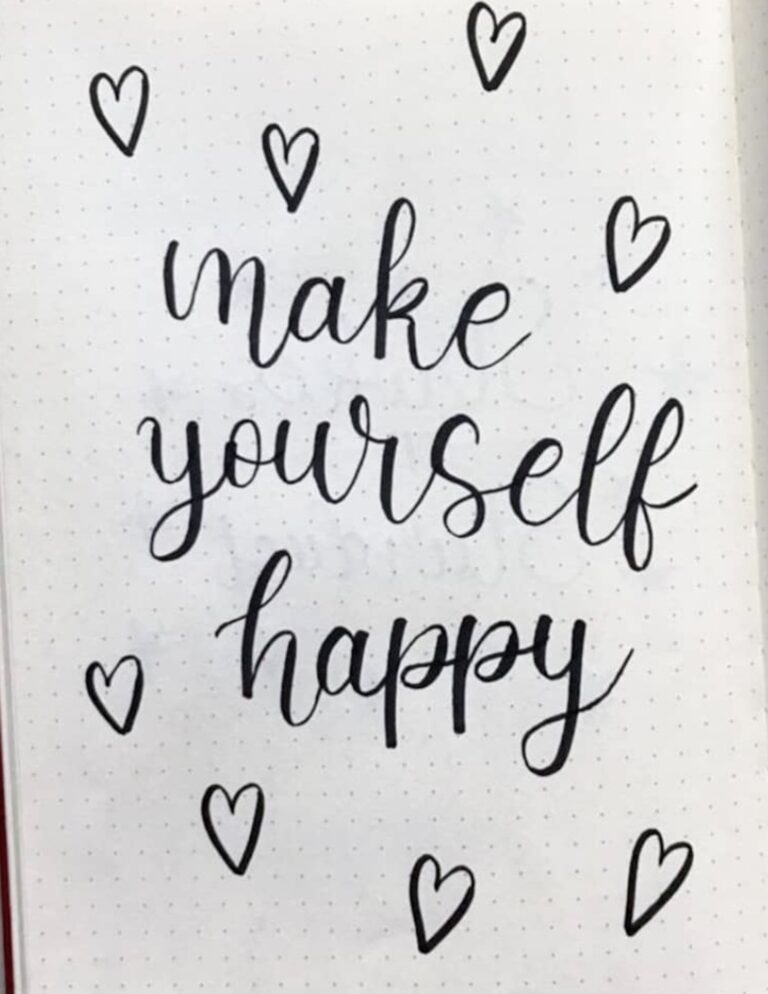 make
yourself
happy